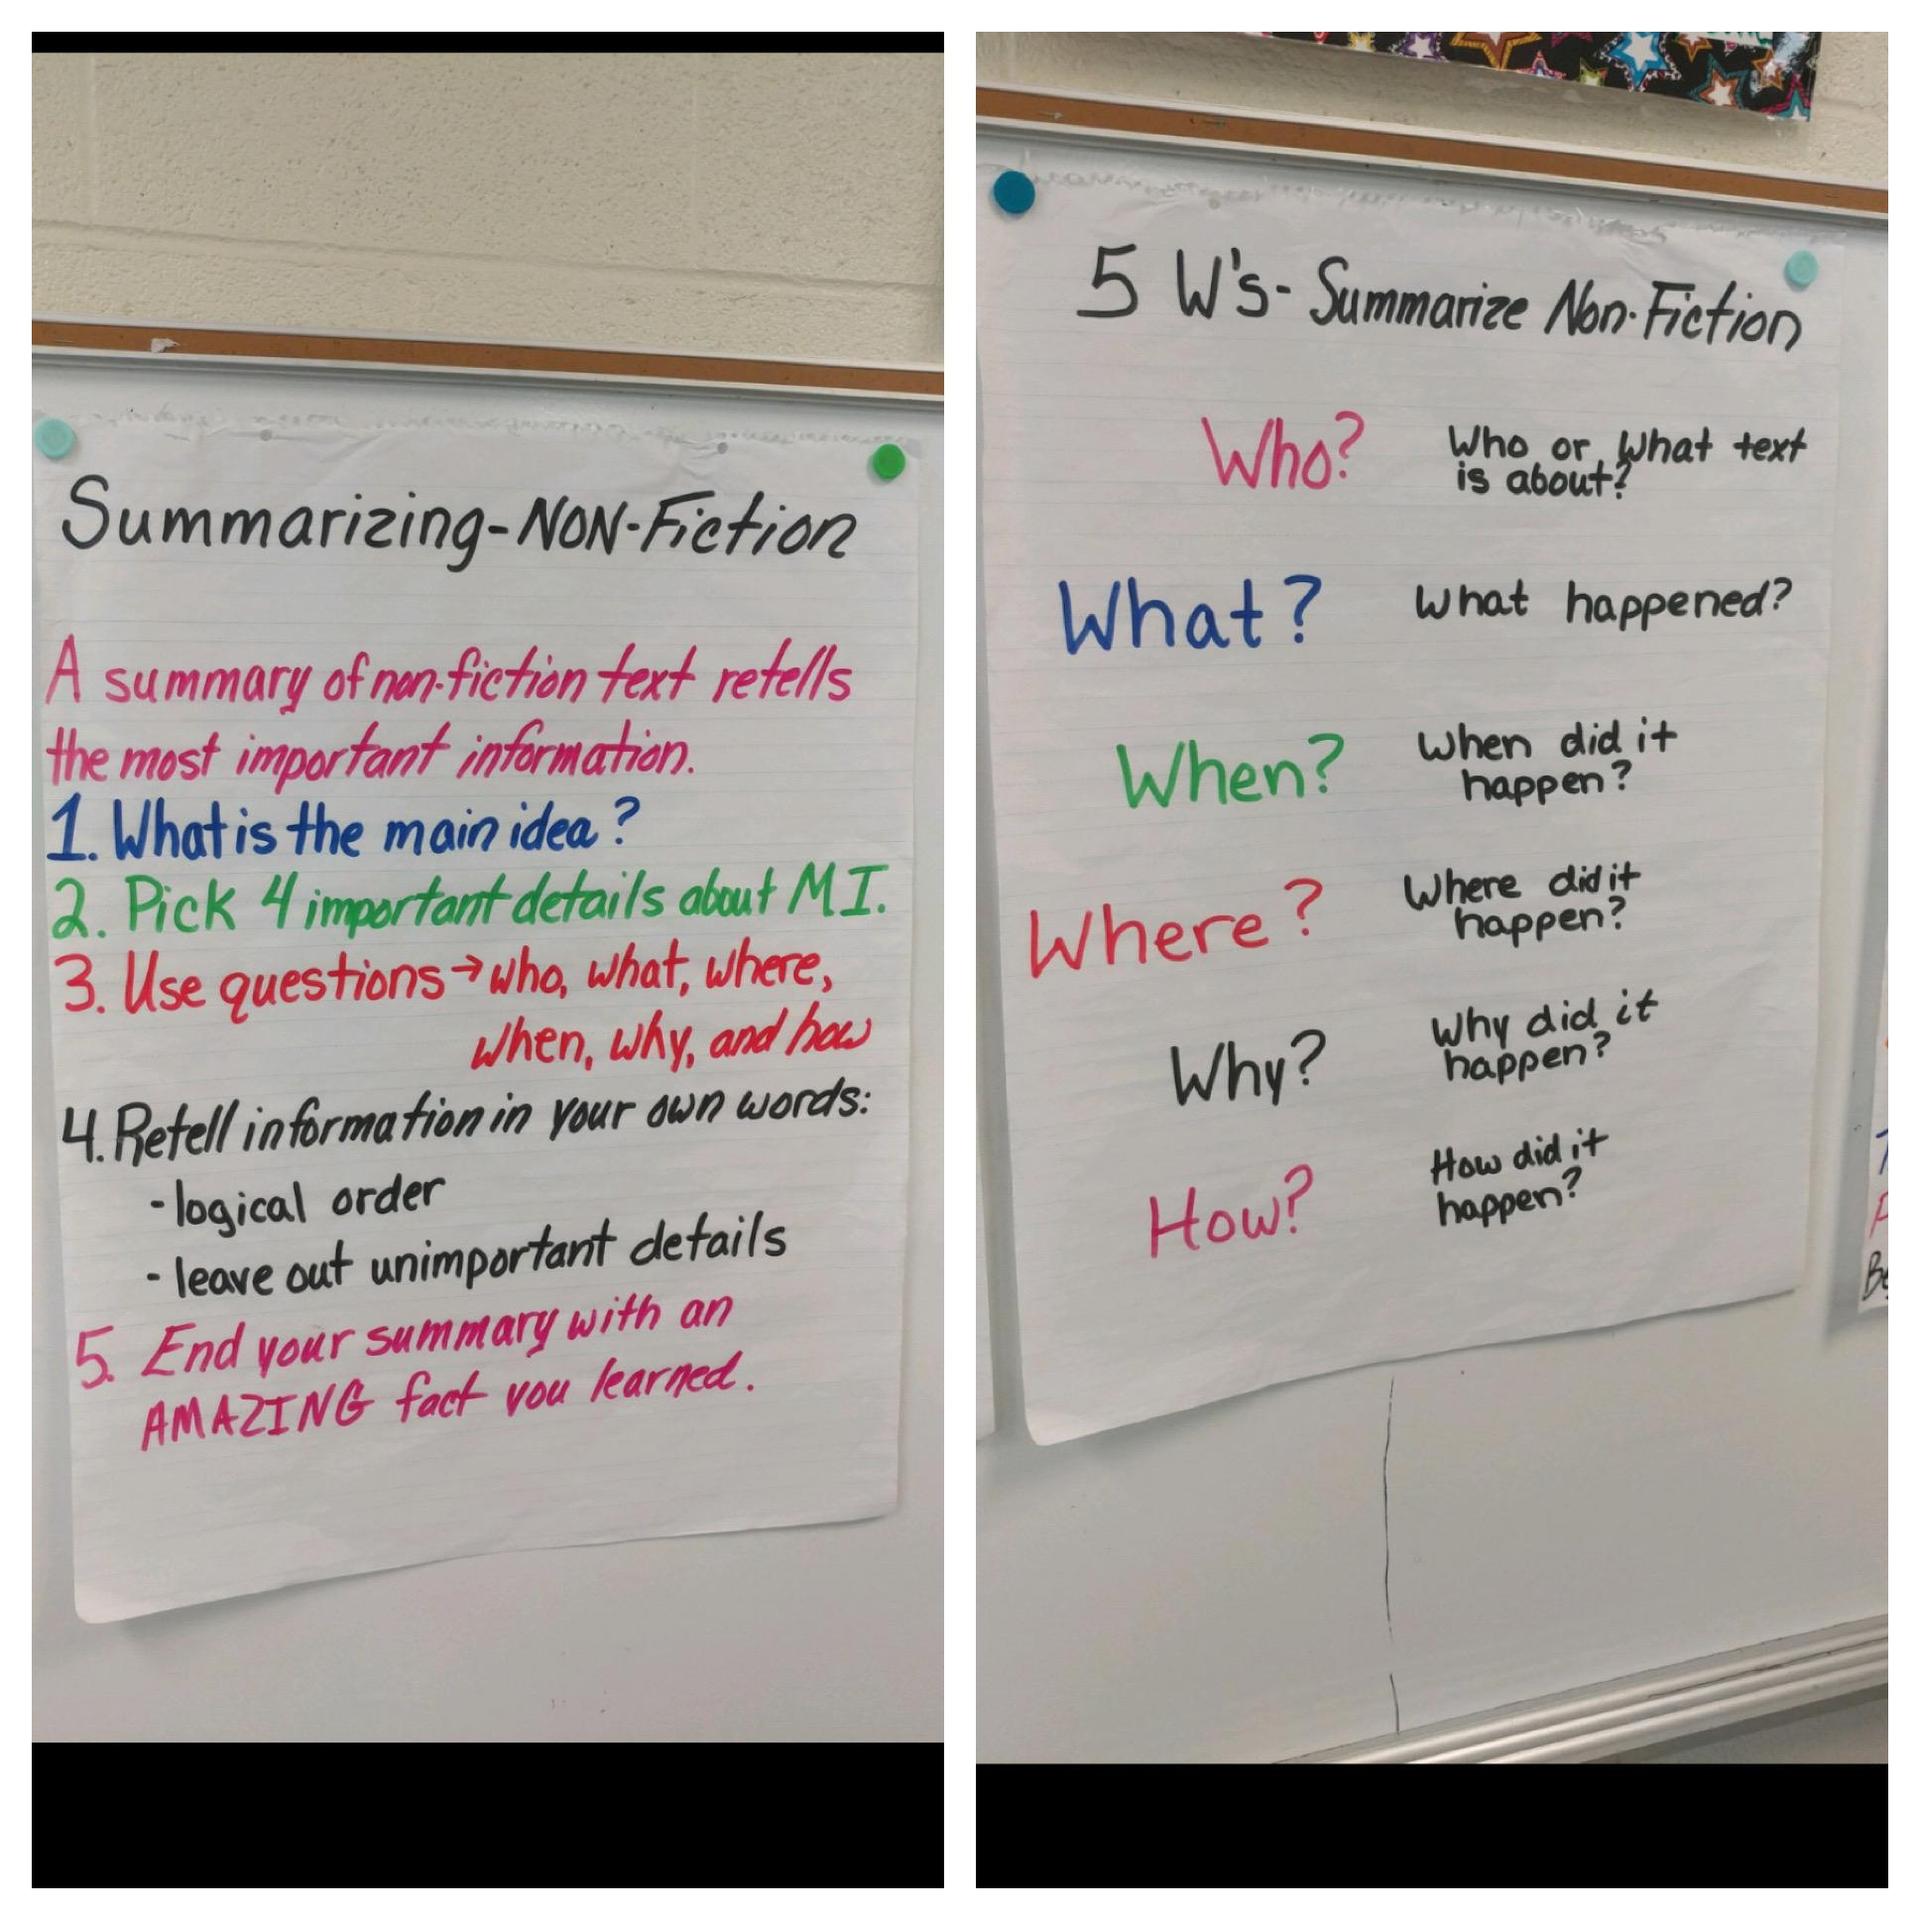 Summarizing-NON-Fiction
A summary of non-fiction text retells
the most important information.
1. What is the main idea?
2. Pick 4 important details about M I.
3. Use questions → who, what, where,
when, why, and how
4. Retell information in your own words:
- logical order
- leave out unimportant details
5. End your summary with an
AMAZING fact you learned.
5 W's- Summarize Non-Fiction
Who? Who or what text
is about?
What? What happened?
When? When did it
happen?
Where? Where did it
happen?
Why? Why did it
happen?
How? How did it
happen?